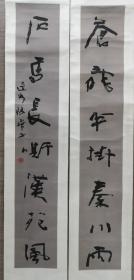 蒼龍半掛秦川雨
石馬長嘶漢苑風